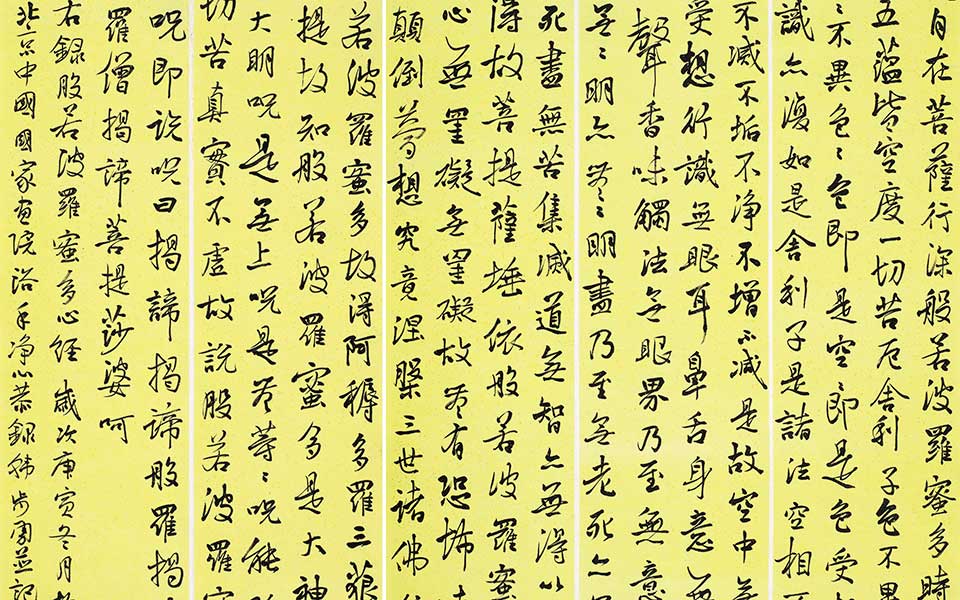 自在菩薩行深般若波羅蜜多時
五蕴皆空度一切苦厄舍利子色不異
〻不異色〻色即是空〻即是色受
識亦復如是舍利子是諸法空相不
不滅不垢不净不增不减是故空中無
受想行識無眼耳鼻舌身意無
聲香味觸法無眼界乃至無意
無〻明亦無〻明盡乃至無老死亦
死盡無苦集滅道無智亦無得以
得故菩提薩埵依般若波羅蜜
心無罣礙無罣礙故無有恐怖
顛倒夢想究竟涅槃三世諸佛
若波羅蜜多故得阿耨多羅三藐
提故知般若波羅蜜多是大神
大明呪是無上呪是無等〻呪能除
切苦真實不虛故說般若波羅蜜
呪即说呪曰揭諦揭諦般羅揭
羅僧揭諦菩提莎婆呵
右録般若波羅蜜多心經 歲次庚寅冬月
北京中國國家畫院浴手净心恭録並記